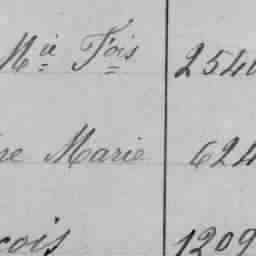 Mie Fois 2540
re Marie 624
çois 1209